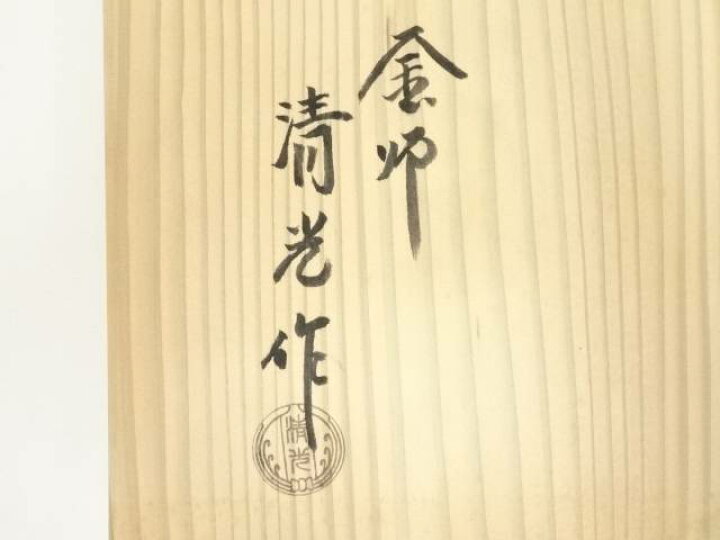 金师
清光作
清光